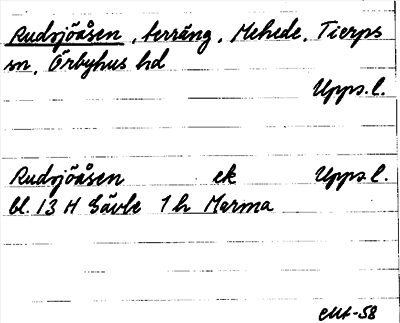 Rudsjöåsen, terräng, Mehede, Tierps
sn, Örbyhus hd
Upps.l.
Rudsjöåsen ek Upps.l.
bl. 13 H Gävle 1h Marma